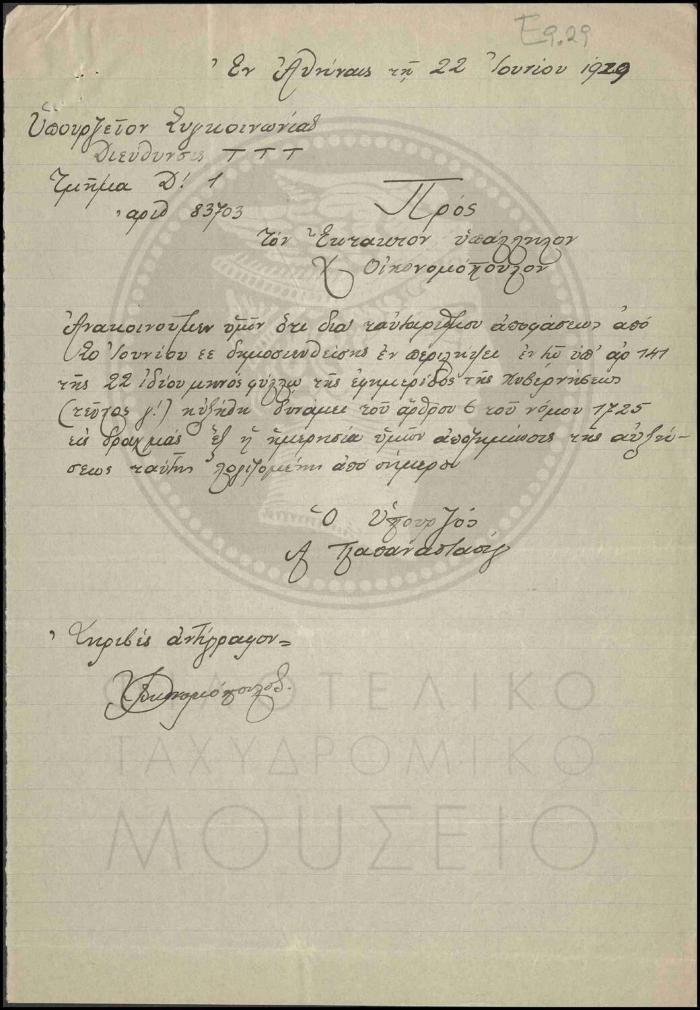 Ε9.29
Ἐν Ἀθήναις τῇ 22 Ἰουνίου 1919
Ὑπουργεῖον Συγκοινωνίας
Διεύθυνσις Τ Τ Τ
Τμῆμα Δ! 1
ἀριθ 83703
Πρός
τόν Ἔκτακτον ὑπάλληλον
Χ Οἰκονομόπουλον
Ἀνακοινοῦμεν ὑμῖν ὅτι διά ταυταρίθμου ἀποφάσεως ἀπό
Ἰουνίου ἐ ἔ δημοσιευθείσης ἐν περιλήψει ἐν τῷ ὑπ' ἀρ 141
τῆς 22 ἰδίου μηνός φύλλῳ τῆς ἐφημερίδος τῆς Κυβερνήσεως
(τεῦχος γ!) ηὐξήθη δυνάμει τοῦ ἄρθρου 6 τοῦ νόμου 1725
εἰς δραχμάς ἕξ ἡ ἡμερησία ὑμῶν ἀποζημίωσις τῆς αὐξή-
σεως ταύτης λογιζομένης ἀπό σήμερον
Ὁ Ὑπουργός
Α Παπαναστασίου
Ἀκριβές ἀντίγραφον =
ΧΟικονομόπουλος.
ΦΙΛΟΤΕΛΙΚΟ
ΤΑΧΥΔΡΟΜΙΚΟ
ΜΟΥΣΕΙΟ